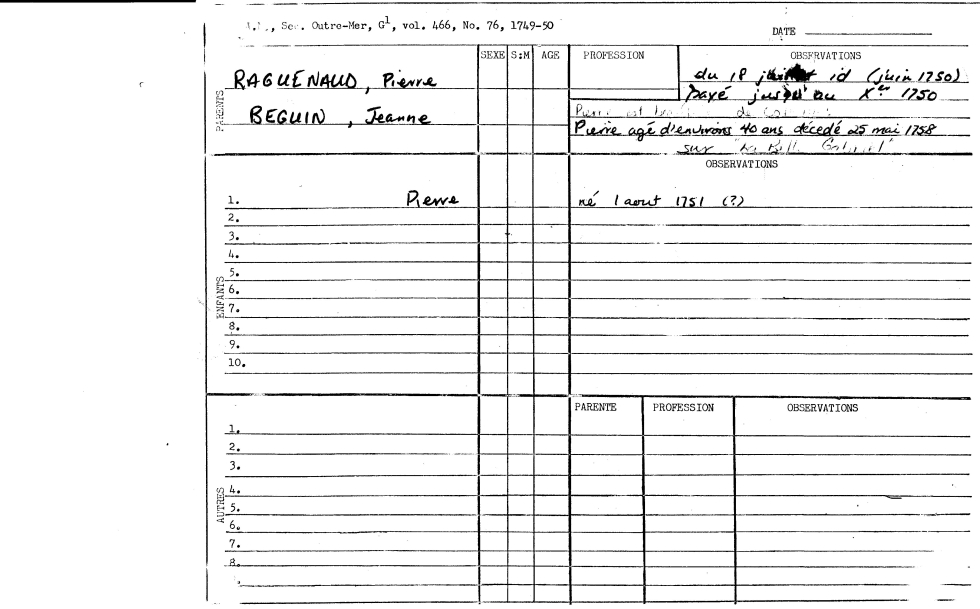 Outre-Mer, G1, vol. 466, No. 76, 1749-50
DATE
SEXE S:M AGE PROFESSION OBSERVATIONS
PARENTS
RAGUENAUD, Pierre
BEGUIN, Jeanne
du 18 id (juin 1750)
payé jusqu'au Xbre 1750
Pierre est de
Pierre agé d'environs 40 ans décédé 25 mai 1758
sur "La
OBSERVATIONS
ENFANTS
1. Pierre né 1 aout 1751 (?)
2.
3.
4.
5.
6.
7.
8.
9.
10.
PARENTE PROFESSION OBSERVATIONS
AUTRES
1.
2.
3.
4.
5.
6.
7.
8.